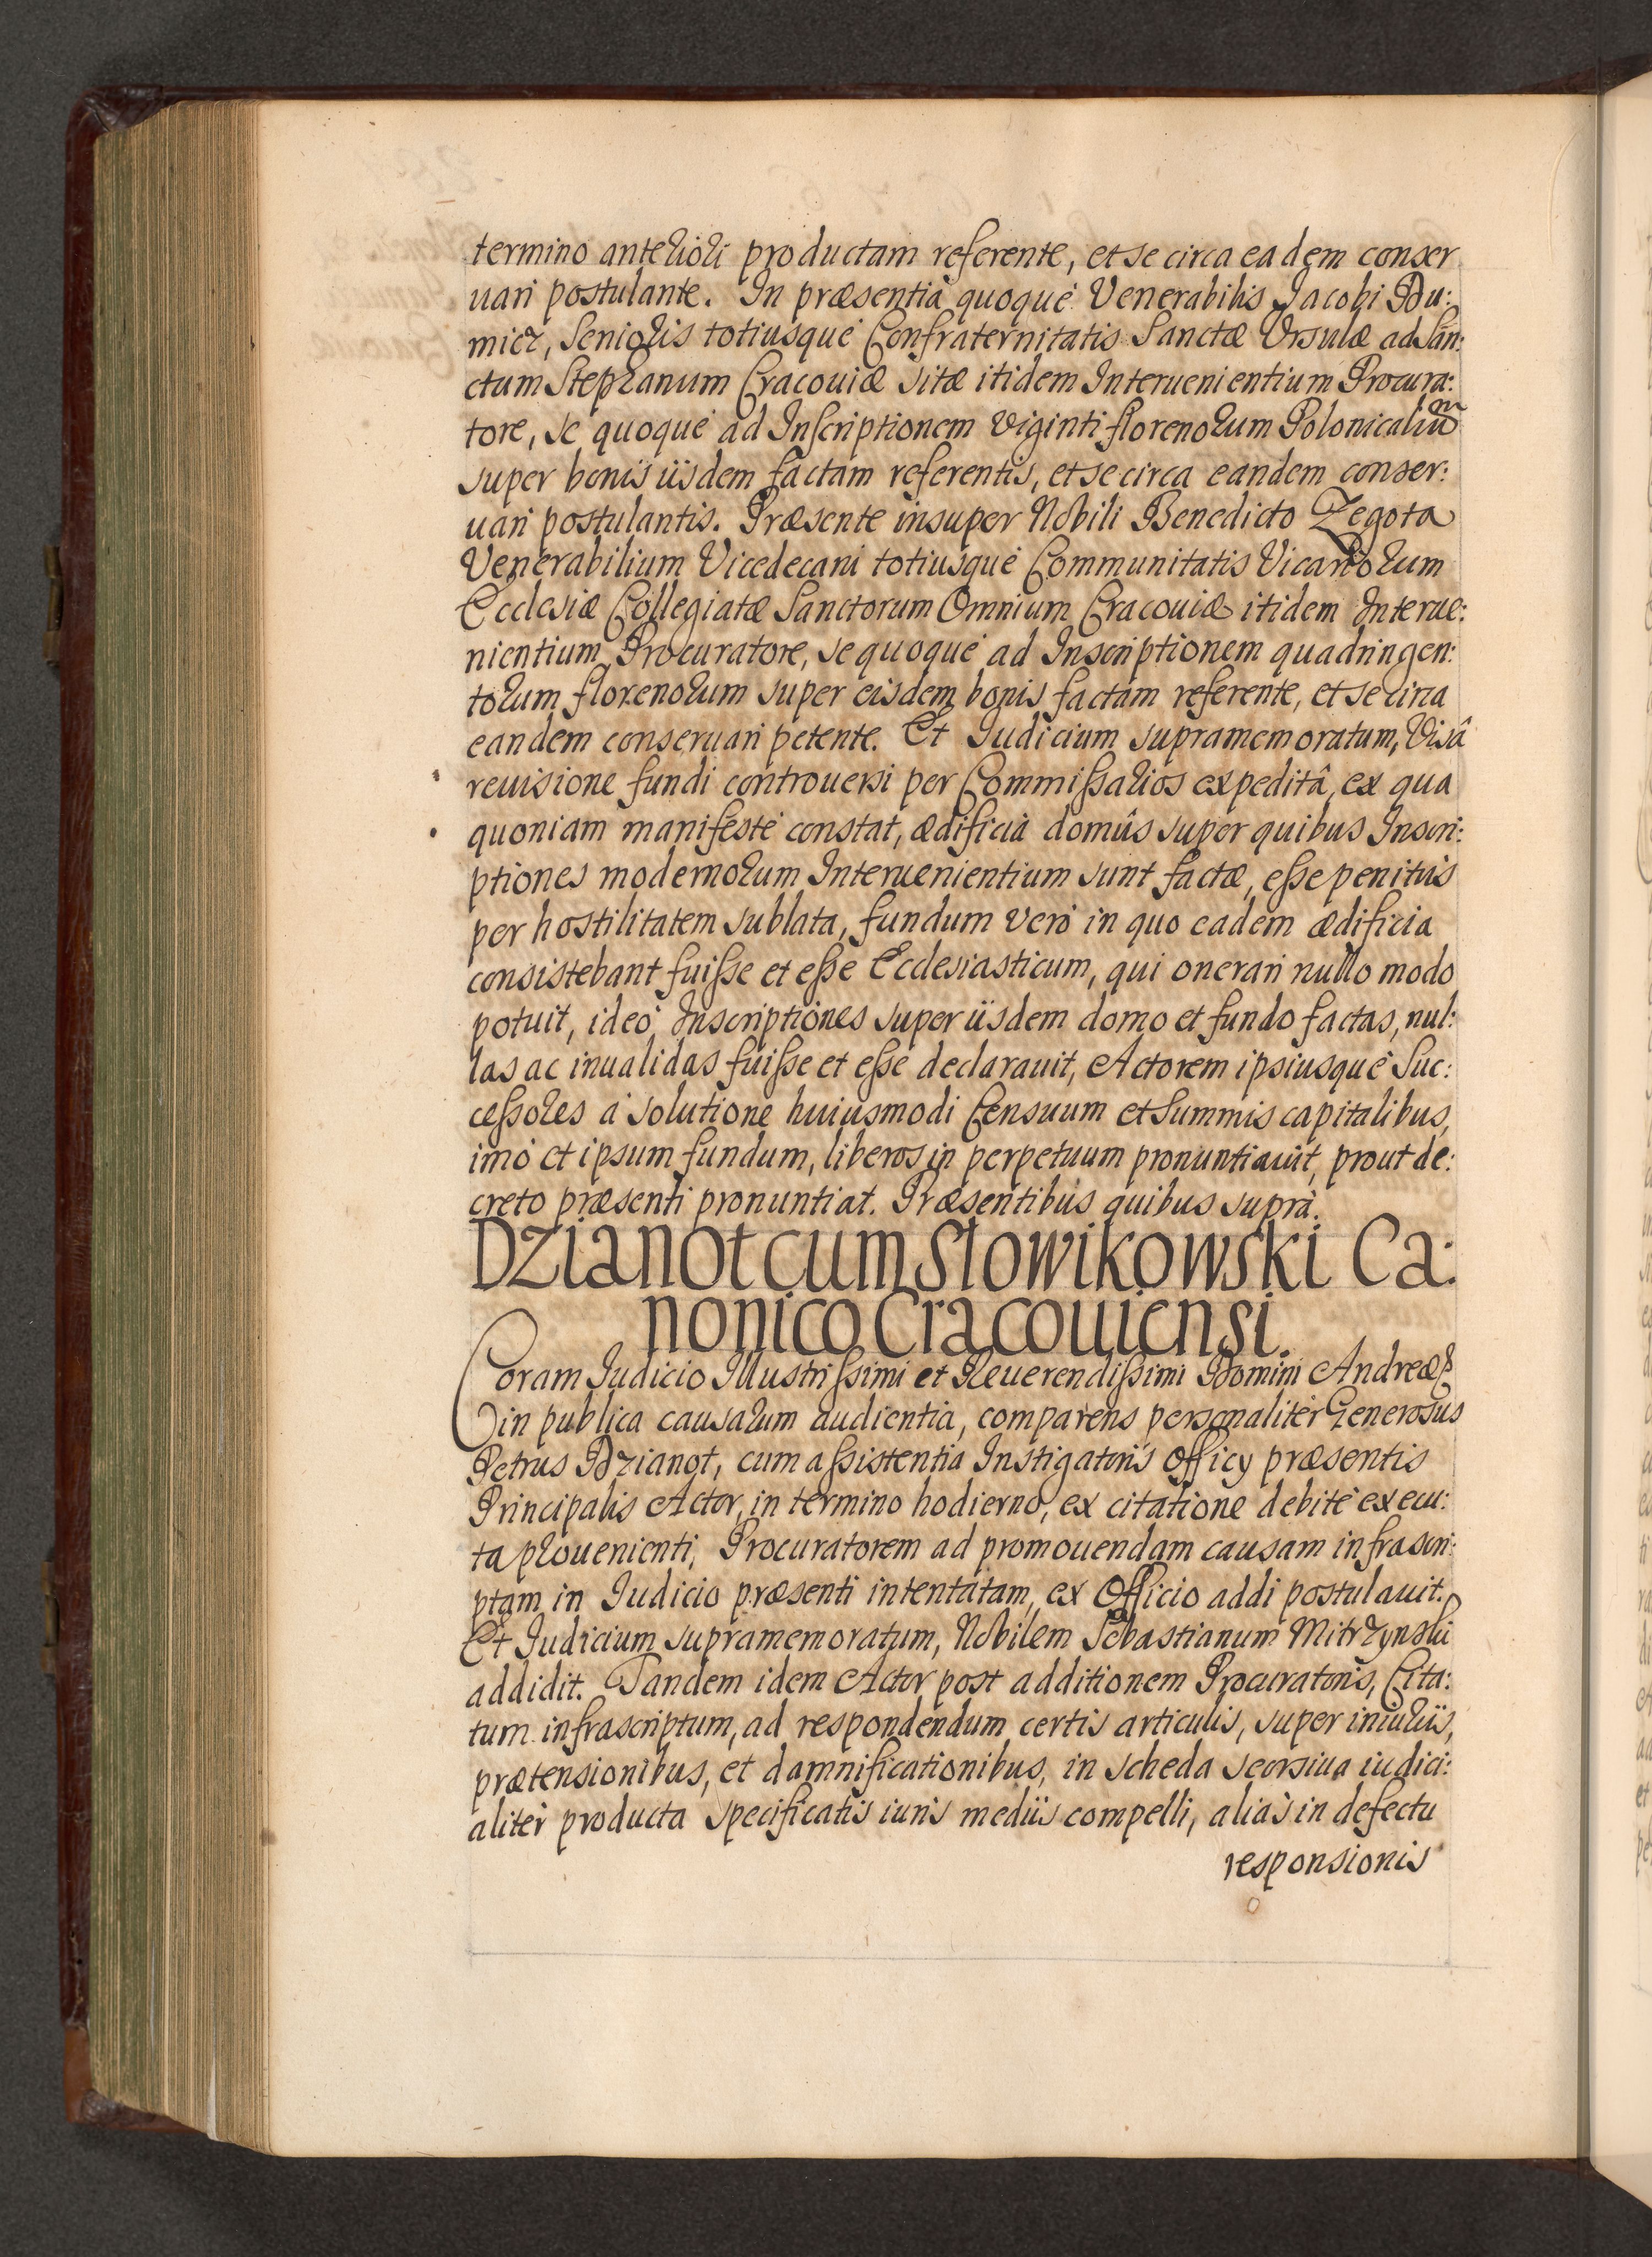 termino anteriori productam referente, et se circa eadem conser
uari postulante. In præsentià quoquè Venerabilis Jacobi Du:
micz, Senioris totiusquè Confraternitatis Sanctæ Vrsulæ ad San:
ctum Stephanum Cracouiæ sitæ itidem Interuenientium Procura:
tore, se quoquè ad Inscriptionem viginti florenorum Polonicalium
super bonis iisdem factam referentis, et se circa eandem conser:
uari postulantis. Præsente insuper Nobili Benedicto Zegota
Venerabilium Vicedecani totiusquè Communitatis Vicariorum
Ecclesiæ Collegiatæ Sanctorum Omnium Cracouiæ itidem Interue:
nientium Procuratore, se quoquè ad Inscriptionem quadringen:
torum florenorum super eisdem bonis factam referente, et se circa
eandem conseruari petente. Et Judicium supramemoratum, Visâ
reuisione fundi controuersi per Commissarios expeditâ, ex qua
quoniam manifestè constat, ædificia domûs super quibus Inscri:
ptiones modernorum Interuenientium sunt factæ, esse penitùs
per hostilitatem sublata, fundum verò in quo eadem ædificia
consistebant fuisse et esse Ecclesiasticum, qui onerari nullo modo
potuit, ideò Inscriptiones super iisdem domo et fundo factas, nul:
las ac inualidas fuisse et esse declarauit, Actorem ipsiusquè Suc:
cessores à solutione huiusmodi Censuum et Summis capitalibus,
imò et ipsum fundum, liberos in perpetuum pronuntiauit, prout de:
creto præsenti pronuntiat. Præsentibus quibus suprà.
Dzianot cum Słowikowski Ca:
nonico Cracouiensi.
Coram Judicio Illustrissimi et Reuerendissimi Domini Andreæ
in publica causarum audientia, comparens personalitèr Generosus
Petrus Dzianot, cum assistentia Instigatoris Officy præsentis
Principalis Actor, in termino hodierno, ex citatione debitè execu:
ta prouenienti, Procuratorem ad promouendam causam infrascri:
ptam in Judicio præsenti intentatam, ex Officio addi postulauit.
Et Judicium supramemoratum, Nobilem Sebastianum Mitrzynski
addidit. Tandem idem Actor post additionem Procuratoris, Cita:
tum infrascriptum, ad respondendum certis articulis, super iniuriis,
prætensionibus, et damnificationibus, in scheda seorsiua iudici:
alitèr producta specificatis iuris mediis compelli, aliàs in defectu
responsionis